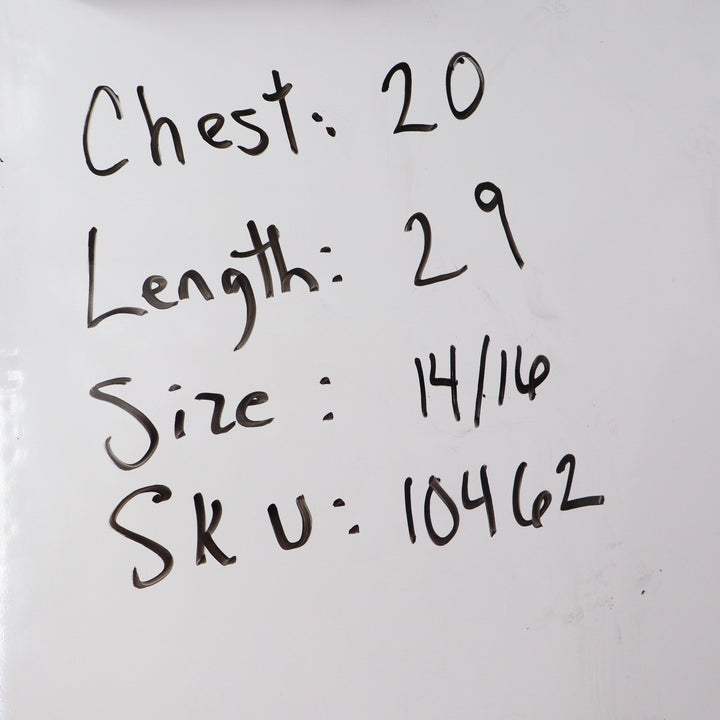 Chest: 20
Length: 29
Size: 14/16
SKU: 10462